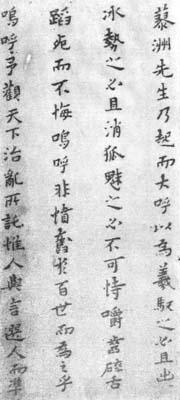 藜洲先生乃起而大呼以為羲馭之必且出
冰勢之必且消狐魅之必不可恃嚼齒碎舌
蹈死而不悔嗚呼非憤奮於百世而為之乎
嗚呼予觀天下治亂所託惟人與言選人而準